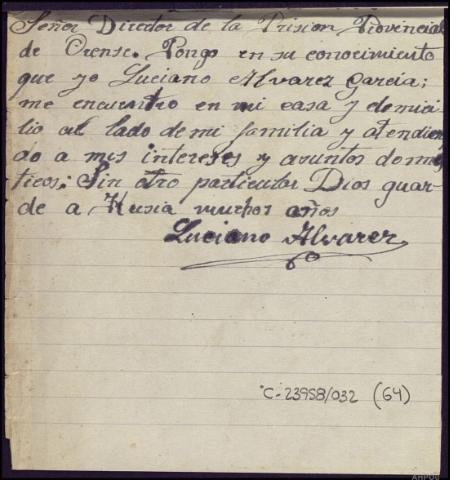 Señor Director de la Prision Provincial
de Orense. Pongo en su conocimiento
que yo Luciano Alvarez Garcia;
me encuentro en mi casa y demici
lio al lado de mi familia y atendien
do a mis intereses y asuntos domes
ticos; Sin otro particular Dios guar
de a Husia muchos años
Luciano Alvarez
C-23958/032 (64)
AHPOU